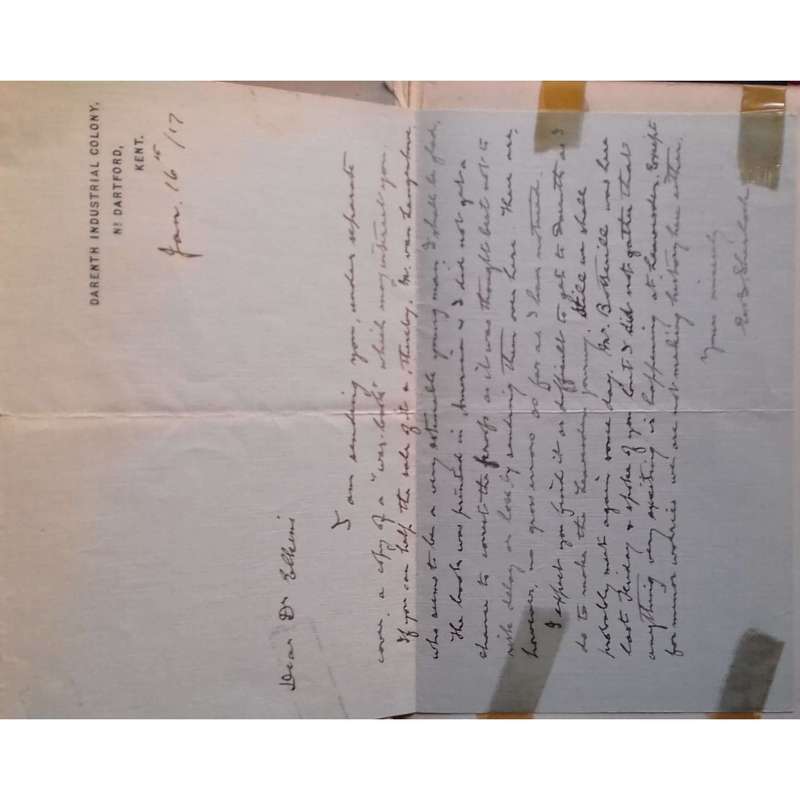 DARENTH INDUSTRIAL COLONY,
Nr DARTFORD,
KENT.
Jan. 16th /17
Dear Dr Elkins
I am sending you, under separate
cover, a copy of a "war-book" which may interest you.
If you can help the sale of it &, thereby, Mr. van
who seems to be a very estimable young man, I shall be glad.
The book was printed in America & I did not get a
chance to correct the proofs as it was thought best not to
risk delay or loss by sending them over here. There are,
however, no gross errors so far as I have noticed.
I expect you find it as difficult to get to Darenth as I
do to make the Leavesden journey. Still we shall
probably meet again some day. Mr. was here
last Friday & spoke of you but I did not gather that
anything very exciting is happening at Leavesden. Except
for minor worries we are not making history here either.
Yours sincerely
Sherlock